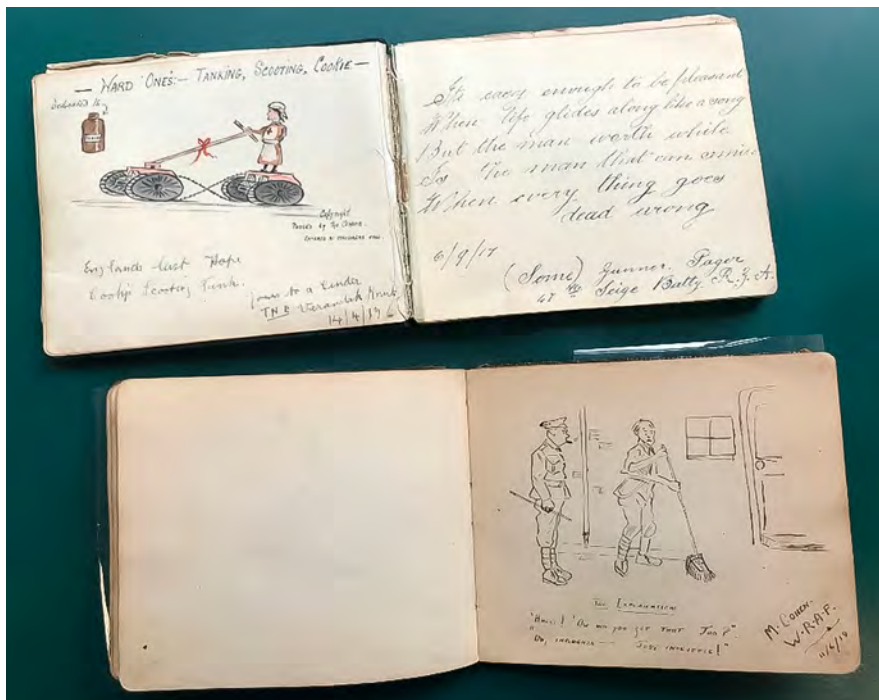 — WARD ONE'S:— TANKING, SCOOTING, COOKIE —
Dedicated to
Copyright
Passed by the Censor.
England's last Hope
Cook's Scooting Tank.
yours to a Cinder
THE Verandah
14/4/17
Its easy enough to be pleasant
When life glides along like a song
But the man worth while
Is the man that can smile
When every thing goes
dead wrong
6/9/17
(Some) Gunner. Pager
Seige Batty. R.G.A.
THE EXPLANATION
"HULLO! 'OW DID YOU GET THAT JOB?"
"OH, INFLUENCE — JUST INFLUENCE!"
M. COHEN.
W.R.A.F.